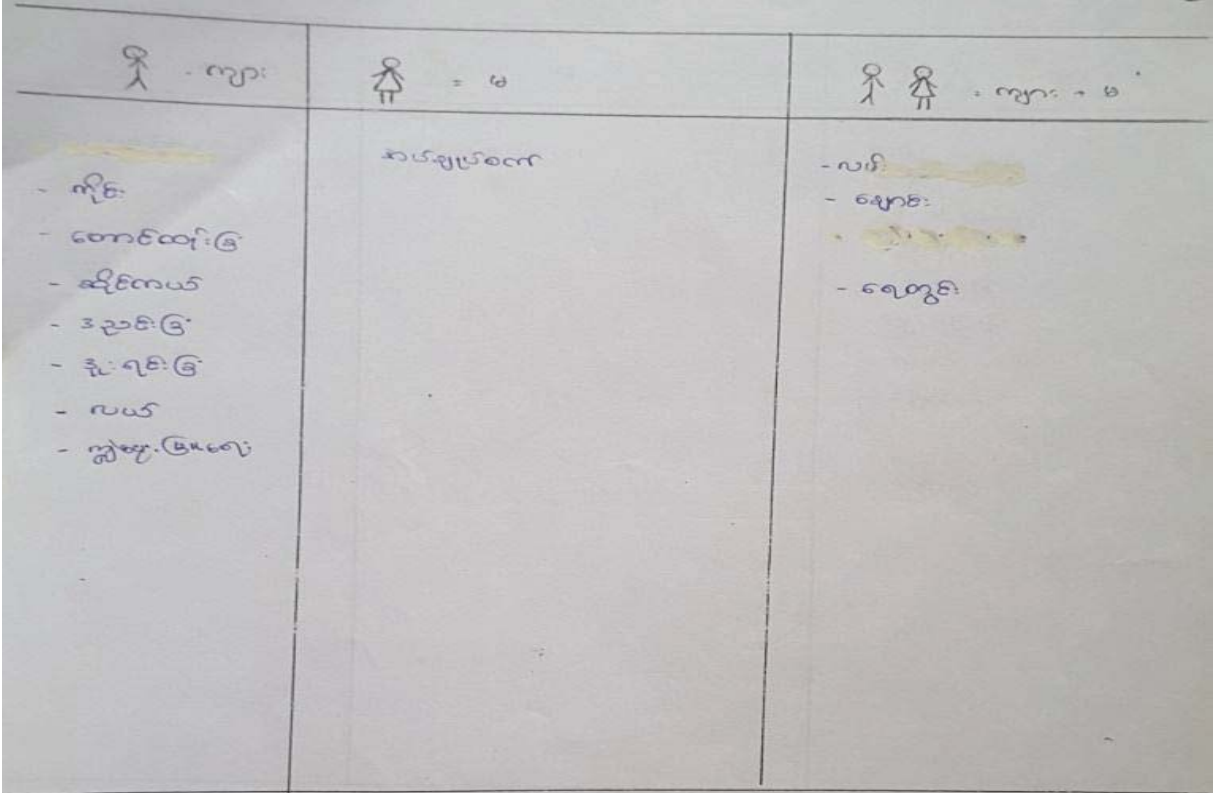 - ကျား
= မ
= ကျား + မ
- ကိုင်း
- တောင်ထုံးခြံ
- ဆိုင်ကယ်
- ဒညင်းခြံ
- ဒူးရင်းခြံ
- လယ်
- ကျွဲ
အပ်ချုပ်စက်
- လမ်း
- ချောင်း
- ရေတွင်း